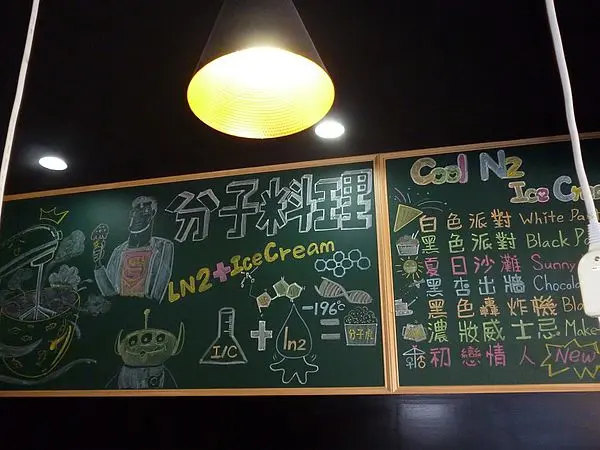 分子料理
LN2+IceCream
-196°C
I/C + ln2 = 分子虎
Cool N2
Ice Cre
白色派對 White Pa
黑色派對 Black Pa
夏日沙灘 Sunny
黑杏出牆 Chocola
黑色轟炸機 Bla
濃妝威士忌 Make
初戀情人 New